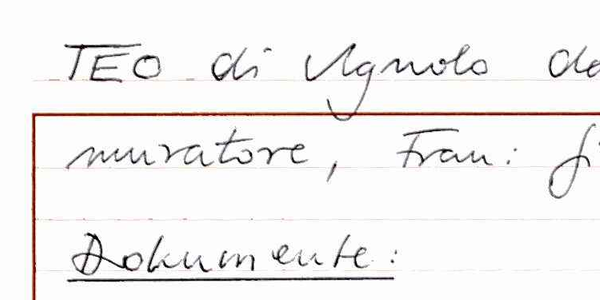 TEO di Agnolo
muratore, Fran:
Dokumente: